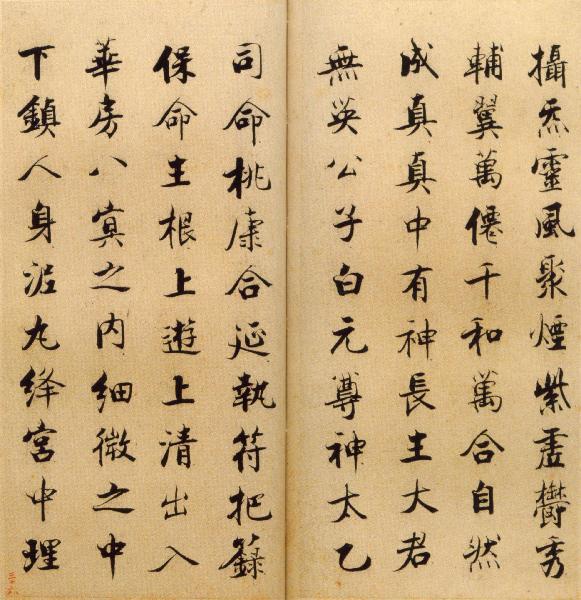 攝炁靈風聚煙紫虛鬱秀
輔翼萬僊千和萬合自然
成真真中有神長生大君
無英公子白元尊神太乙
司命桃康合延執符把籙
保命生根上遊上清出入
華房八冥之內細微之中
下鎮人身泥丸絳宮中理
三十六